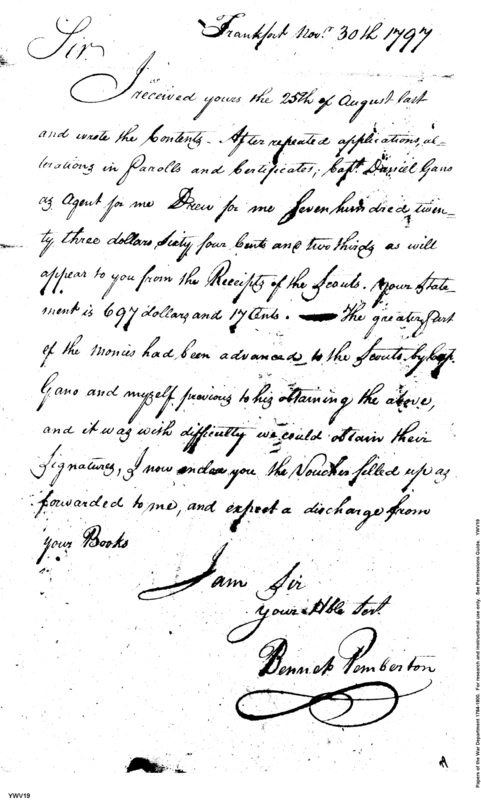 Frankfort Novr. 30th 1797
Sir
I received yours the 25th of August last
and wrote the Contents - After repeated applications, al-
terations in Parolls and Certificates; Capt. Daniel Gano
as Agent for me Drew for me Seven hundred twen-
ty three dollars, Sixty four Cents and two thirds as will
appear to you from the Receipts of the Scouts. Your State-
ment is 697 dollars and 17 Cents. — The greater Part
of the monies had been advanced to the Scouts by Cap.
Gano and myself previous to his obtaining the above,
and it was with difficulty we could obtain their
Signatures, I now enclose you the Voucher filled up as
forwarded to me, and expect a discharge from
your Books
I am Sir
Your Hble Servt.
Bennet Pemberton
A
YWV19
Papers of the War Department 1784-1800. For research and instructional use only. See Permissions Guide. YWV19